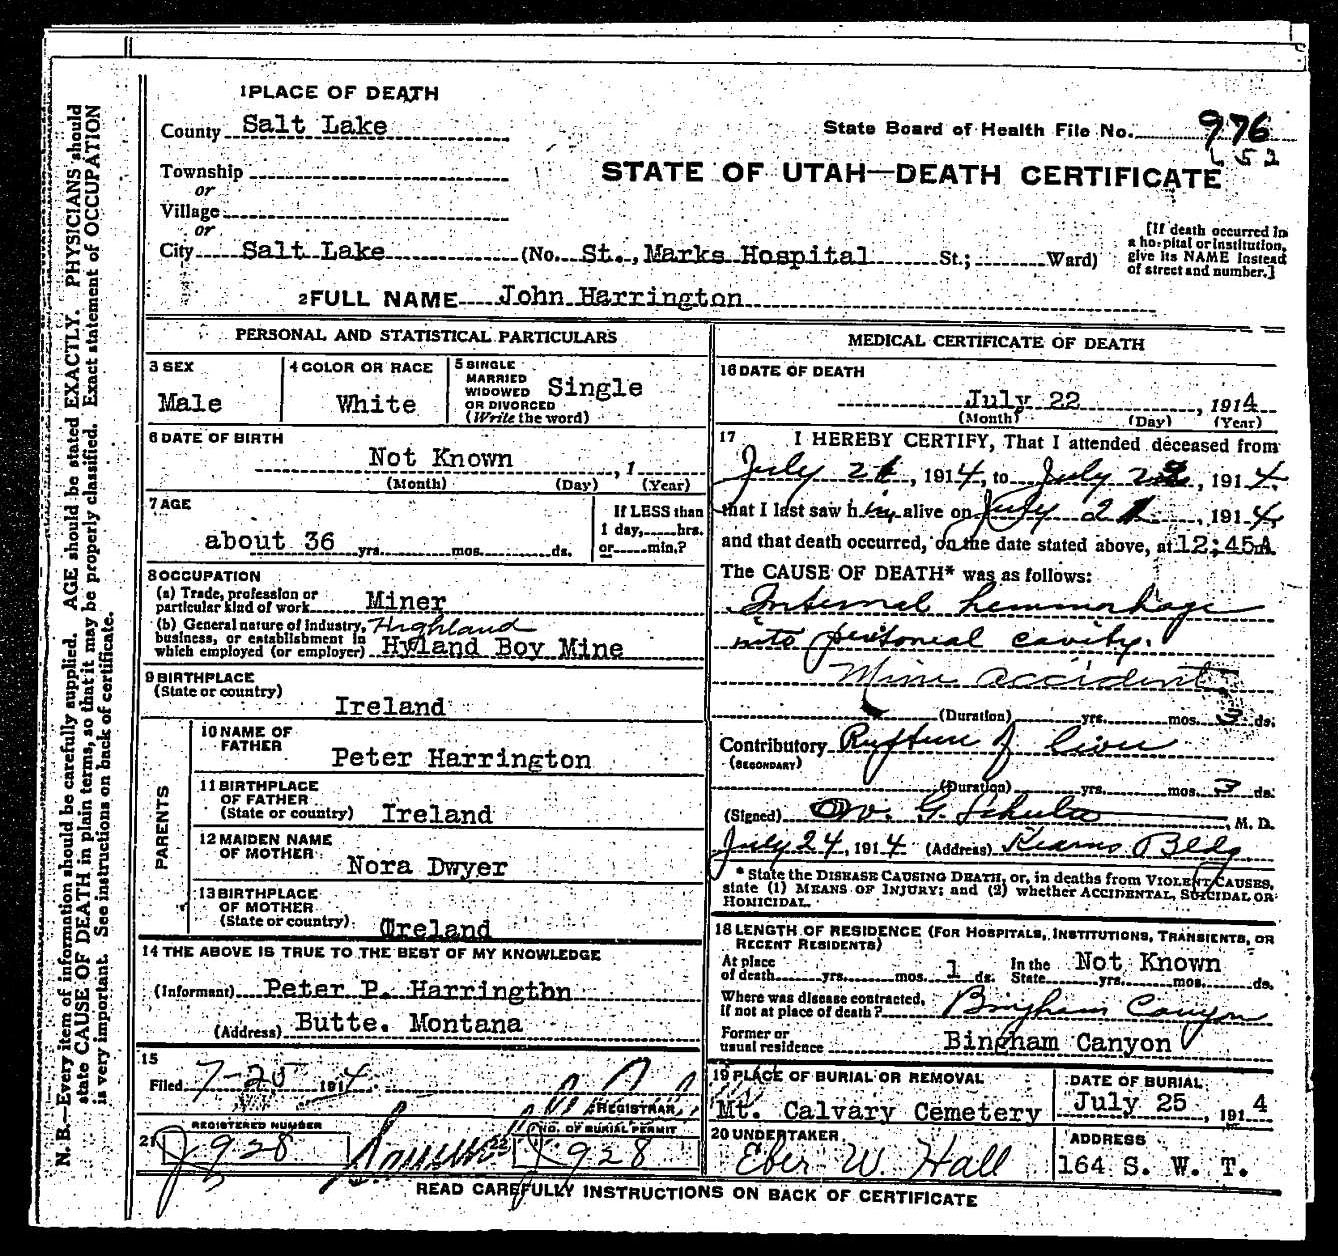 1 PLACE OF DEATH
County Salt Lake
State Board of Health File No. 976
652
Township
or
Village
or
City Salt Lake (No. St., Marks Hospital St.; Ward)
STATE OF UTAH—DEATH CERTIFICATE
[If death occurred in
a hospital or institution,
give its NAME instead
of street and number.]
2 FULL NAME John Harrington
PERSONAL AND STATISTICAL PARTICULARS
3 SEX
Male
4 COLOR OR RACE
White
5 SINGLE
MARRIED
WIDOWED
OR DIVORCED
(Write the word)
Single
6 DATE OF BIRTH
Not Known , 1
(Month) (Day) (Year)
7 AGE
about 36 yrs. mos. ds.
If LESS than
1 day, hrs.
or min.?
8 OCCUPATION
(a) Trade, profession or
particular kind of work Miner
(b) General nature of industry, Highland
business, or establishment in
which employed (or employer) Hyland Boy Mine
9 BIRTHPLACE
(State or country)
Ireland
PARENTS
10 NAME OF
FATHER
Peter Harrington
11 BIRTHPLACE
OF FATHER
(State or country) Ireland
12 MAIDEN NAME
OF MOTHER
Nora Dwyer
13 BIRTHPLACE
OF MOTHER
(State or country) Ireland
14 THE ABOVE IS TRUE TO THE BEST OF MY KNOWLEDGE
(Informant) Peter P. Harrington
(Address) Butte. Montana
15
Filed 7-25 1914
REGISTRAR
REGISTERED NUMBER
21 J 928
22 NO. OF BURIAL PERMIT
J 928
MEDICAL CERTIFICATE OF DEATH
16 DATE OF DEATH
July 22 , 1914
(Month) (Day) (Year)
17 I HEREBY CERTIFY, That I attended deceased from
July 21, 1914, to July 22, 1914,
that I last saw him alive on July 21, 1914,
and that death occurred, on the date stated above, at 12;45A m.
The CAUSE OF DEATH* was as follows:
Internal hemmorhage
into peritoneal cavity.
Mine accident
(Duration) yrs. mos. 3 ds.
Contributory Rupture of liver
(SECONDARY)
(Duration) yrs. mos. 3 ds.
(Signed) G. Schulte, M. D.
July 24, 1914 (Address) Kearns Bldg.
* State the DISEASE CAUSING DEATH, or, in deaths from VIOLENT CAUSES,
state (1) MEANS OF INJURY; and (2) whether ACCIDENTAL, SUICIDAL OR
HOMICIDAL.
18 LENGTH OF RESIDENCE (FOR HOSPITALS, INSTITUTIONS, TRANSIENTS, OR
RECENT RESIDENTS)
At place
of death yrs. mos. 1 ds.
In the
State Not Known yrs. mos. ds.
Where was disease contracted,
If not at place of death? Bingham Canyon
Former or
usual residence Bingham Canyon
19 PLACE OF BURIAL OR REMOVAL
Mt. Calvary Cemetery
DATE OF BURIAL
July 25 , 1914
20 UNDERTAKER
Eber W. Hall
ADDRESS
164 S. W. T.
READ CAREFULLY INSTRUCTIONS ON BACK OF CERTIFICATE
N. B.—Every item of information should be carefully supplied. AGE should be stated EXACTLY. PHYSICIANS should
state CAUSE OF DEATH in plain terms, so that it may be properly classified. Exact statement of OCCUPATION
is very important. See instructions on back of certificate.